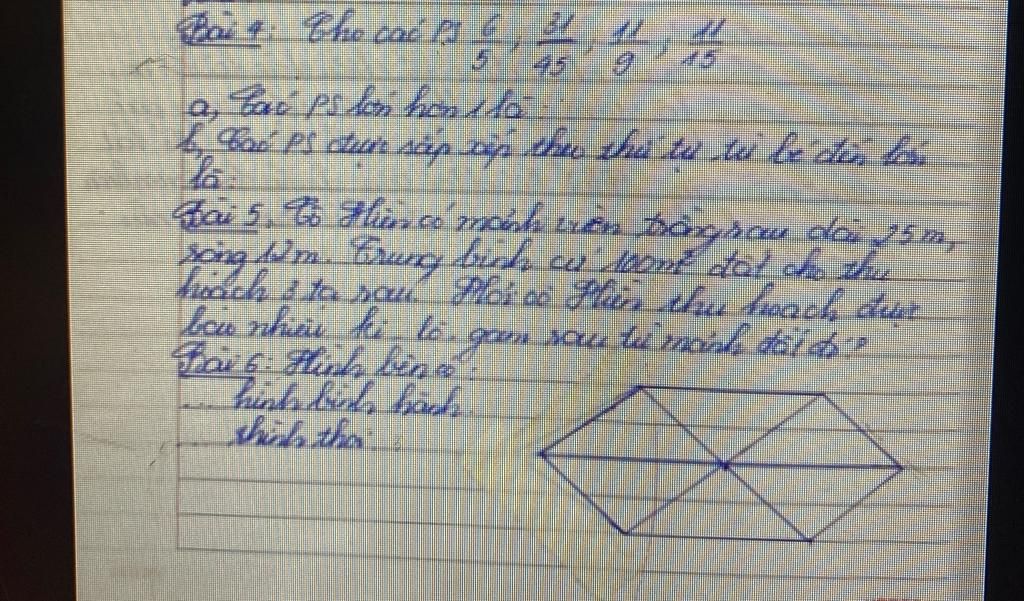 Bài 4: Cho các PS 6/5, 31/45, 11/9, 11/15
a, Các PS lớn hơn 1 là:
b, Các PS được sắp xếp theo thứ tự từ bé đến lớn
là:
Bài 5. Cô Hiền có mảnh vườn trồng rau dài 25m,
rộng 12m. Trung bình cứ 100m² đất cho thu
hoạch 3 tạ rau. Hỏi cô Hiền thu hoạch được
bao nhiêu ki lô gam rau từ mảnh đất đó?
Bài 6: Hình bên có:
... hình bình hành
... hình thoi